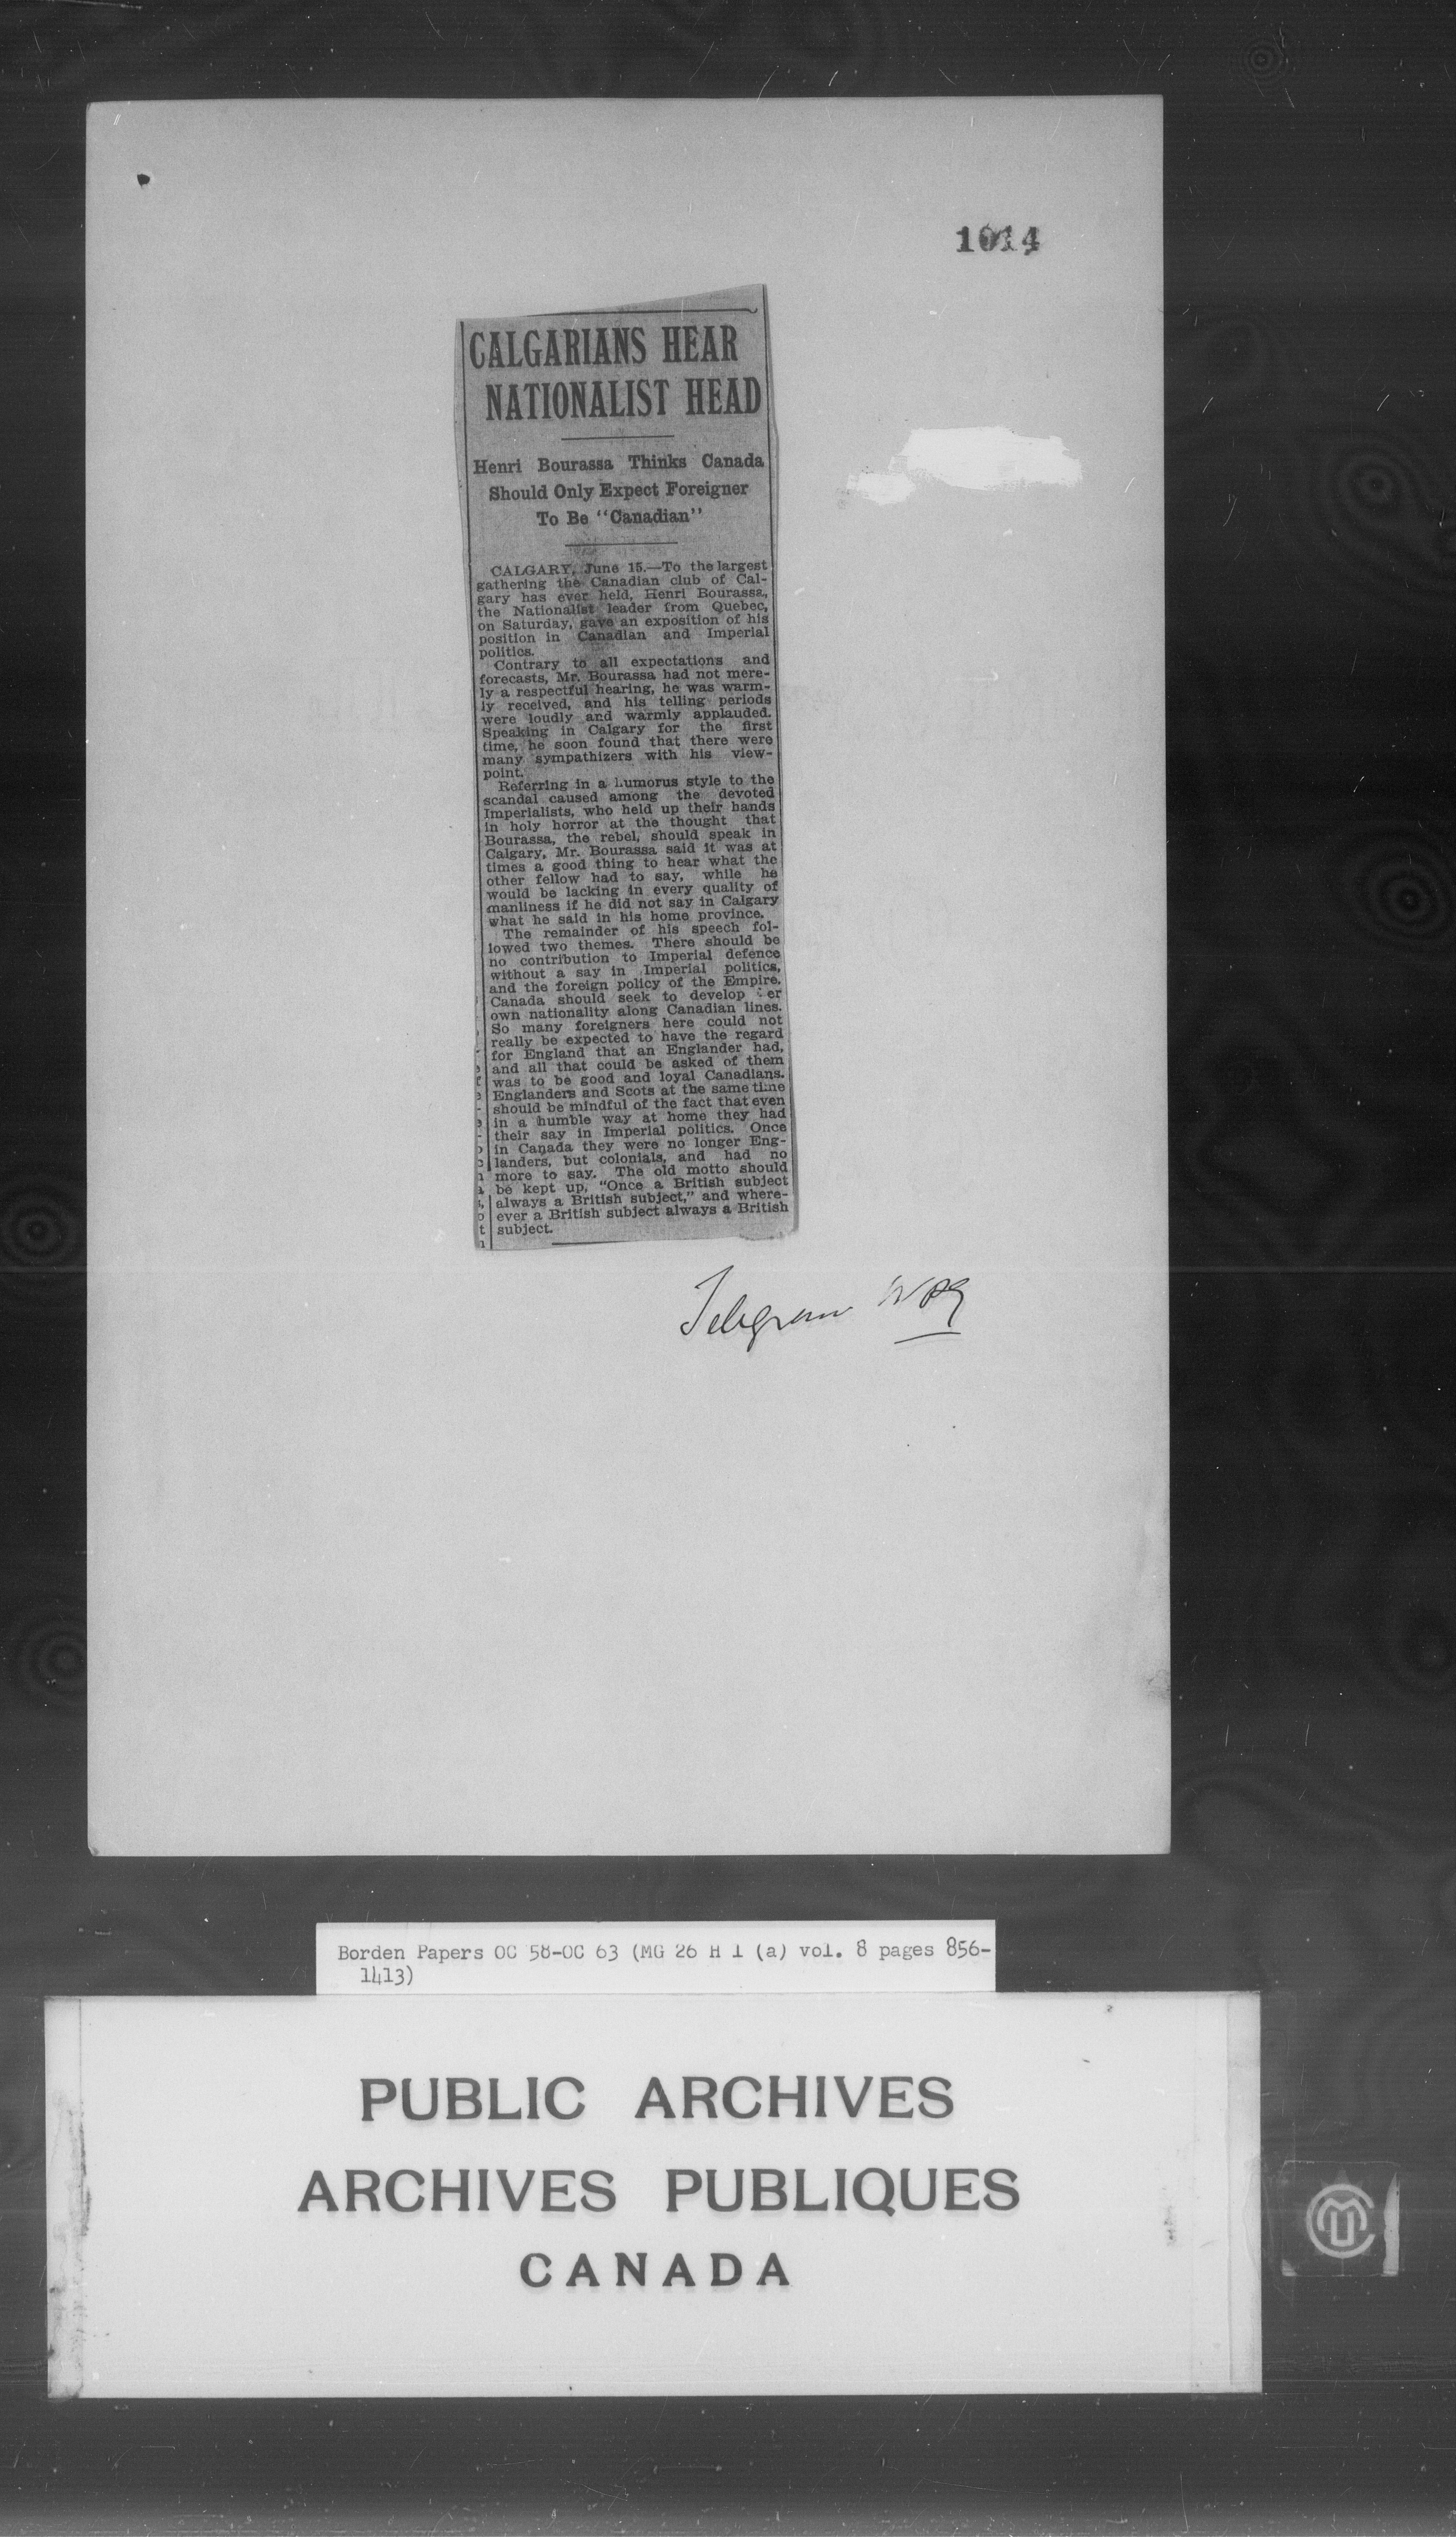 1014
CALGARIANS HEAR
NATIONALIST HEAD
Henri Bourassa Thinks Canada
Should Only Expect Foreigner
To Be "Canadian"
CALGARY, June 15.—To the largest
gathering the Canadian club of Cal-
gary has ever held, Henri Bourassa,
the Nationalist leader from Quebec,
on Saturday, gave an exposition of his
position in Canadian and Imperial
politics.
Contrary to all expectations and
forecasts, Mr. Bourassa had not mere-
ly a respectful hearing, he was warm-
ly received, and his telling periods
were loudly and warmly applauded.
Speaking in Calgary for the first
time, he soon found that there were
many sympathizers with his view-
point.
Referring in a humorus style to the
scandal caused among the devoted
Imperialists, who held up their hands
in holy horror at the thought that
Bourassa, the rebel, should speak in
Calgary, Mr. Bourassa said it was at
times a good thing to hear what the
other fellow had to say, while he
would be lacking in every quality of
manliness if he did not say in Calgary
what he said in his home province.
The remainder of his speech fol-
lowed two themes. There should be
no contribution to Imperial defence
without a say in Imperial politics,
and the foreign policy of the Empire.
Canada should seek to develop er
own nationality along Canadian lines.
So many foreigners here could not
really be expected to have the regard
for England that an Englander had,
and all that could be asked of them
was to be good and loyal Canadians.
Englanders and Scots at the same time
should be mindful of the fact that even
in a humble way at home they had
their say in Imperial politics. Once
in Canada they were no longer Eng-
landers, but colonials, and had no
more to say. The old motto should
be kept up, "Once a British subject
always a British subject," and where-
ever a British subject always a British
subject.
Telegram WPG
Borden Papers OC 58-OC 63 (MG 26 H 1 (a) vol. 8 pages 856-
1413)
PUBLIC ARCHIVES
ARCHIVES PUBLIQUES
CANADA